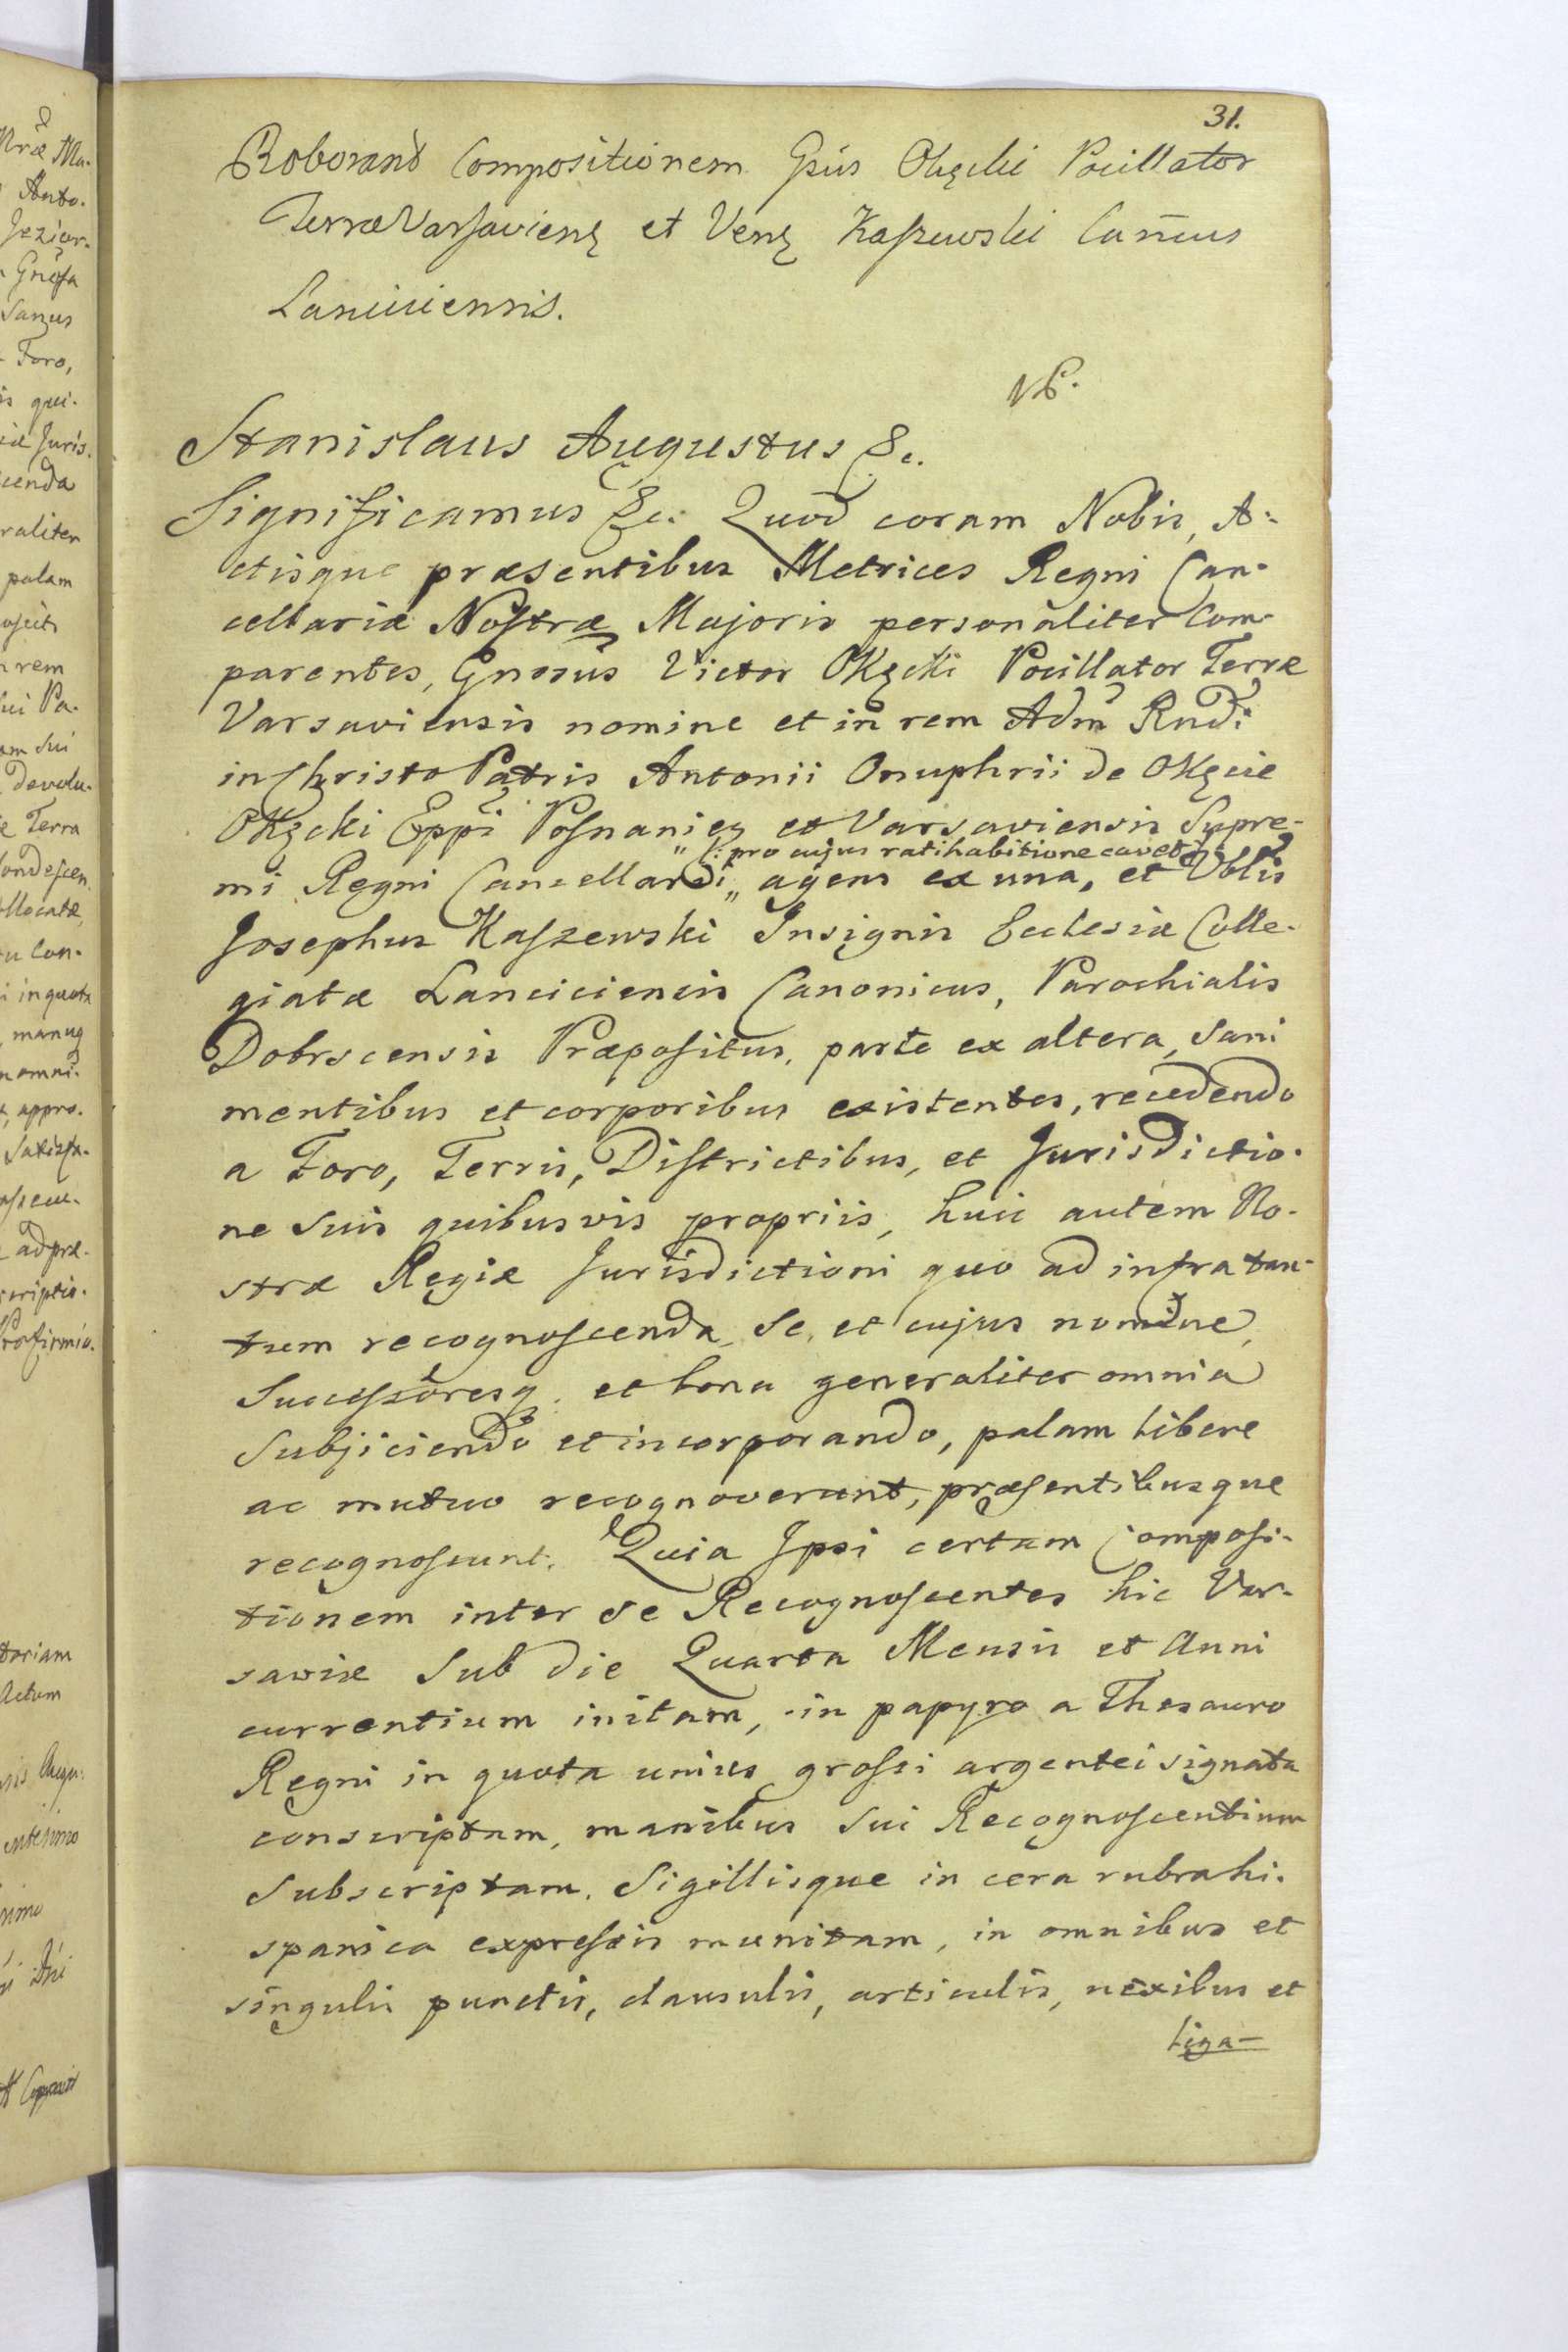 31.
Roborand Compositionem Gsus Okęcki Pocillator
Terræ Varsavienę et Venę Kaszewski Cañcus
Lanciciensis.
Stanislaus Augustus &c.
Significamus &c. Quod coram Nobis, A-
ctisque præsentibus Metrices Regni Can-
cellariæ Nostræ Majoris personaliter Com-
parentes, Gnosus Victor Okęcki Pocillator Terræ
Varsaviensis nomine et in rem Adm Rndi
in Christo Patris Antonii Onuphrii de Okęcie
Okęcki Eppi Posnanieę et Varsaviensis Supre-
„ /: pro cujus ratihabitione cavet :/
mi Regni Cancellarii „ agens ex una, et Vblis
Josephus Kaszewski Insignis Ecclesiæ Colle-
giatæ Lanciciensis Canonicus, Parochialis
Dobrscensis Præpositus, parte ex altera, sani
mentibus et corporibus existentes, recedendo
a Foro, Terris, Districtibus, et Jurisdictio-
ne suis quibusvis propriis, huic autem No-
stræ Regiæ Jurisdictioni quo ad infra tan-
tum recognoscenda, se, et cujus nomine,
Successoresq. et bona generaliter omnia
Subjiciendo et incorporando, palam libere
ac mutuo recognoverunt, præsentibusque
recognoscunt. Quia Ipsi certam Composi-
tionem inter se Recognoscentes hic Var-
saviæ Sub die Quarta Mensis et Anni
currentium initam, in papyro a Thesauro
Regni in quota unius grossi argentei signata
conscriptam, manibus sui Recognoscentium
Subscriptam, Sigillisque in cera rubra hi-
spanica expressis munitam, in omnibus et
singulis punctis, clausulis, articulis, nexibus et
liga-